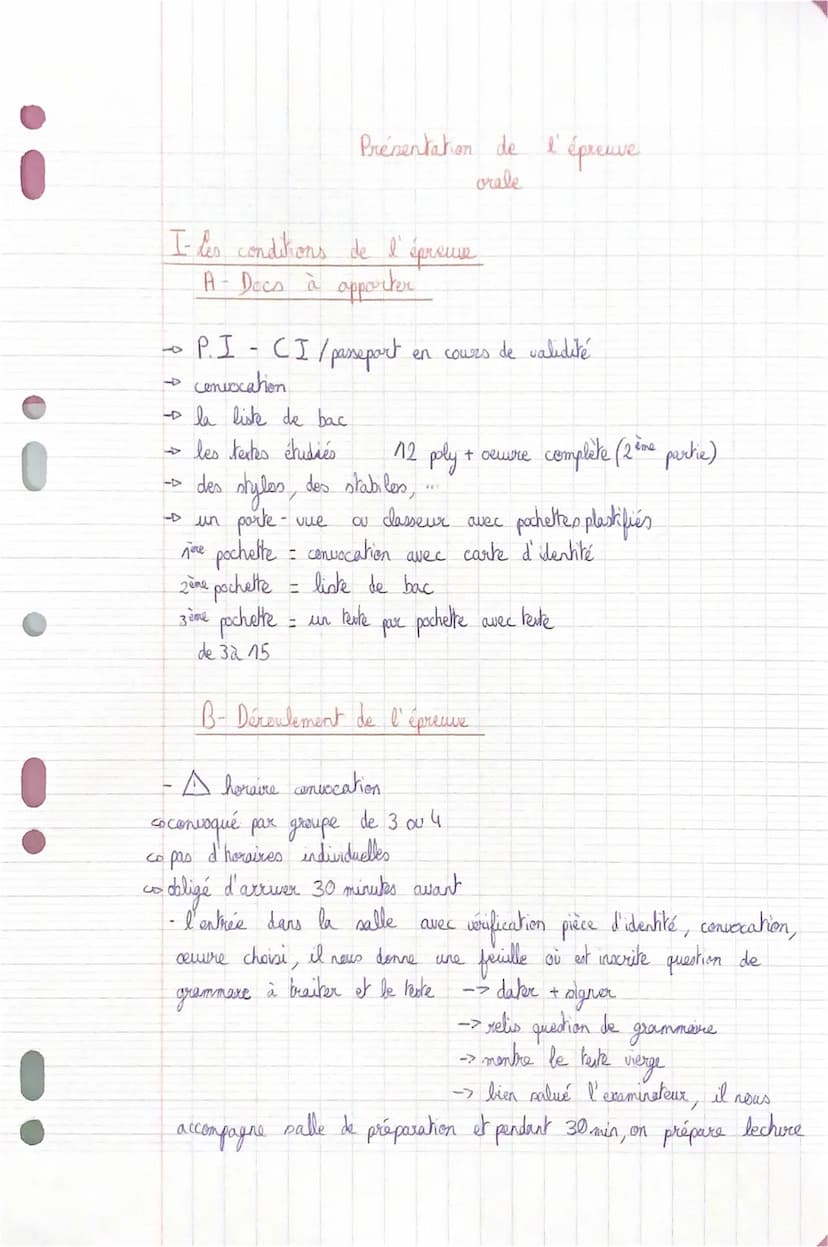 Présentation de l'épreuve
orale
I- Les conditions de l'épreuve
A- Docs à apporter
→ P.I - CI / passeport en cours de validité
→ convocation
→ la liste de bac
→ les textes étudiés 12 poly + oeuvre complète (2ème partie)
→ des stylos, des stabilos, ...
→ un porte-vue ou classeur avec pochettes plastifiés
1ère pochette = convocation avec carte d'identité
2ème pochette = liste de bac
3ème pochette = un texte par pochette avec texte
de 3 à 15
B- Déroulement de l'épreuve
- ⚠ horaire convocation
↪ convoqué par groupe de 3 ou 4
↪ pas d'horaires individuelles
↪ obligé d'arriver 30 minutes avant
- l'entrée dans la salle avec vérification pièce d'identité, convocation,
œuvre choisi, il nous donne une feuille où est inscrite question de
grammaire à traiter et le texte --> dater + signer
--> relis question de grammaire
--> montre le texte vierge
--> bien salué l'examinateur, il nous
accompagne salle de préparation et pendant 30 min, on prépare lecture